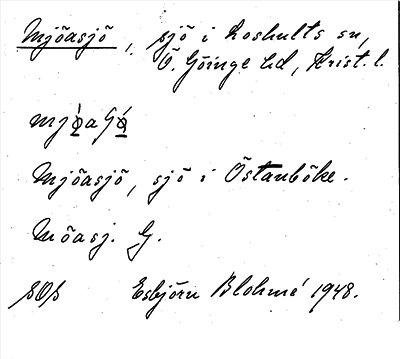 Mjöasjö, sjö i Loshults sn,
Ö. Göinge hd, Krist. l.
Mjöasjö, sjö i Östanböke.
Möasj. G.
SOS Esbjörn Blohmé 1948.